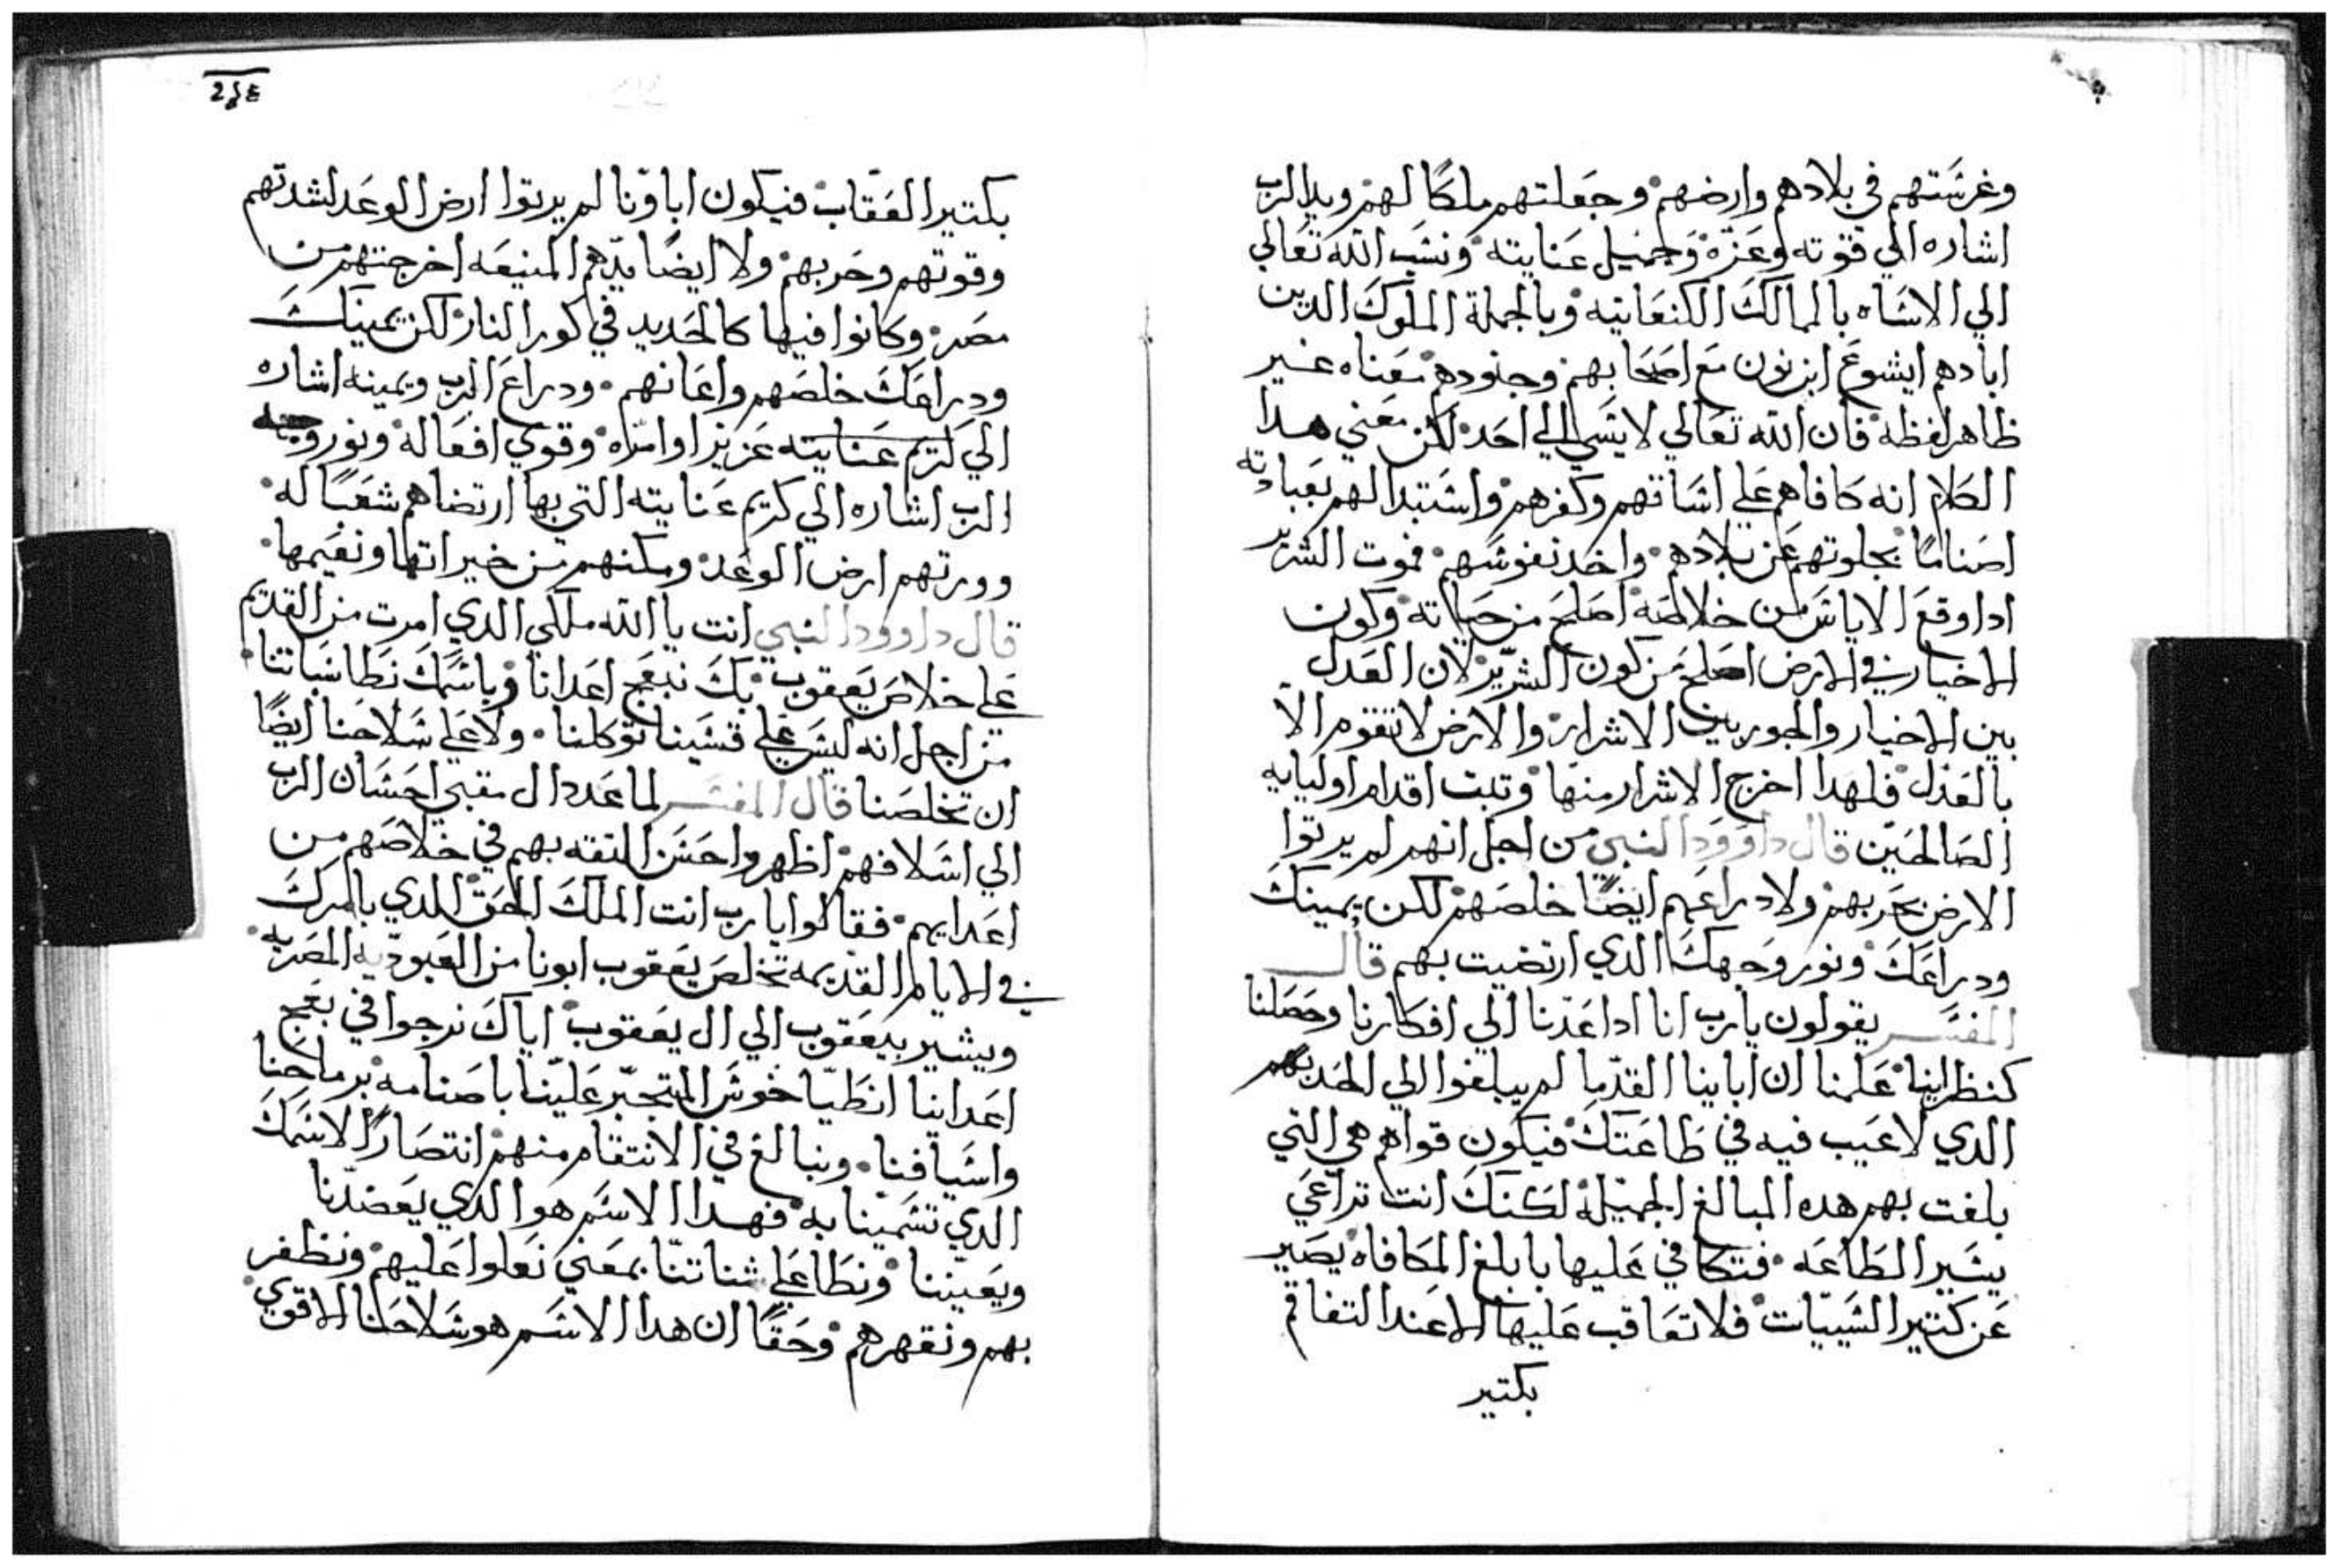 وغرستهم في بلادهم وارضهم وجعلتهم ملكًا لهم ويد الرب
اشاره الي قوته وعزه وجميل عنايته ونسب الله تعالي
الي الاساه بالممالك الكنعانيه وبالجملة الملوك الدين
ابادهم ايشوع ابن نون مع اصحابهم وجنودهم معناه غير
ظاهر لفظه فان الله تعالي لا يسي الي احد لكن معني هدا
الكلام انه كافاهم علي اساتهم وكفرهم واستبدالهم بعبادته
اصنامًا بجلوتهم عن بلادهم واخد نفوسهم فموت الشرير
ادا وقع الاياس من خلاصه اصلح من حياته وكون
الاخيار في الارض اصلح من كون الشرير لان العدل
بين الاخيار والجور بين الاشرار والارض لا تقوم الا
بالعدل فلهدا اخرج الاشرار منها وتبت اقدام اوليايه
الصالحين قال داوود النبي من اجل انهم لم يرتوا
الارض بحربهم ولا دراعهم ايضًا خلصهم لكن يمينك
ودراعك ونور وجهك الدي ارتضيت بهم قال
المفسر يقولون يارب انا ادا عدنا الي افكارنا وحصلنا
كنظراينا علمنا ان اباينا القدما لم يبلغوا الي الحد بهم
الدي لا عيب فيه في طاعتك فيكون قواهم هي التي
بلغت بهم هده المبالغ الجميله لكنك انت تراعي
يسير الطاعه فتكافي عليها بابلغ المكافاه يصير
عن كتير السييات فلا تعاقب عليها الا عند التفاقم
بكتير
بكتير العقاب فيكون اباونا لم يرتوا ارض الوعد لشدتهم
وقوتهم وحربهم ولا ايضًا يدهم المنيعه اخرجتهم من
مصر وكانوا فيها كالحديد في كور النار لكن يمينك
ودراعك خلصهم واعانهم ودراع الرب ويمينه اشاره
الي كريم عنايته عزيز اوامره وقوي افعاله ونور وجه
الرب اشاره الي كريم عنايته التي بها ارتضاهم شعبًا له
وورتهم ارض الوعد ومكنهم من خيراتها ونعيمها
قال داوود النبي انت يا الله ملكي الدي امرت من القديم
علي خلاص يعقوب بك نبعج اعدانا وباسمك نطا شناتنا
من اجل انه ليس علي قسينا توكلنا ولا علي سلاحنا ايضًا
ان تخلصنا قال المفسر لما عدد ال مقبي احسان الرب
الي اسلافهم اظهروا حسن التقه بهم في خلاصهم من
اعدايهم فقالوا يا رب انت الملك الحق الدي بامرك
في الايام القديمه تخلص يعقوب ابونا من العبوديه المصريه
ويشير بيعقوب الي ال يعقوب اياك نرجوا في بعج
اعداينا انطياخوس المتجبر علينا باصنامه برماحنا
واسيافنا ونبالغ في الانتقام منهم انتصارًا لاسمك
الدي تسمينا به فهدا الاسم هو الدي يعضدنا
ويعيننا ونطا علي شناتنا بمعني نعلوا عليهم ونظفر
بهم ونقهرهم وحقًا ان هدا الاسم هو سلاحنا الاقوي